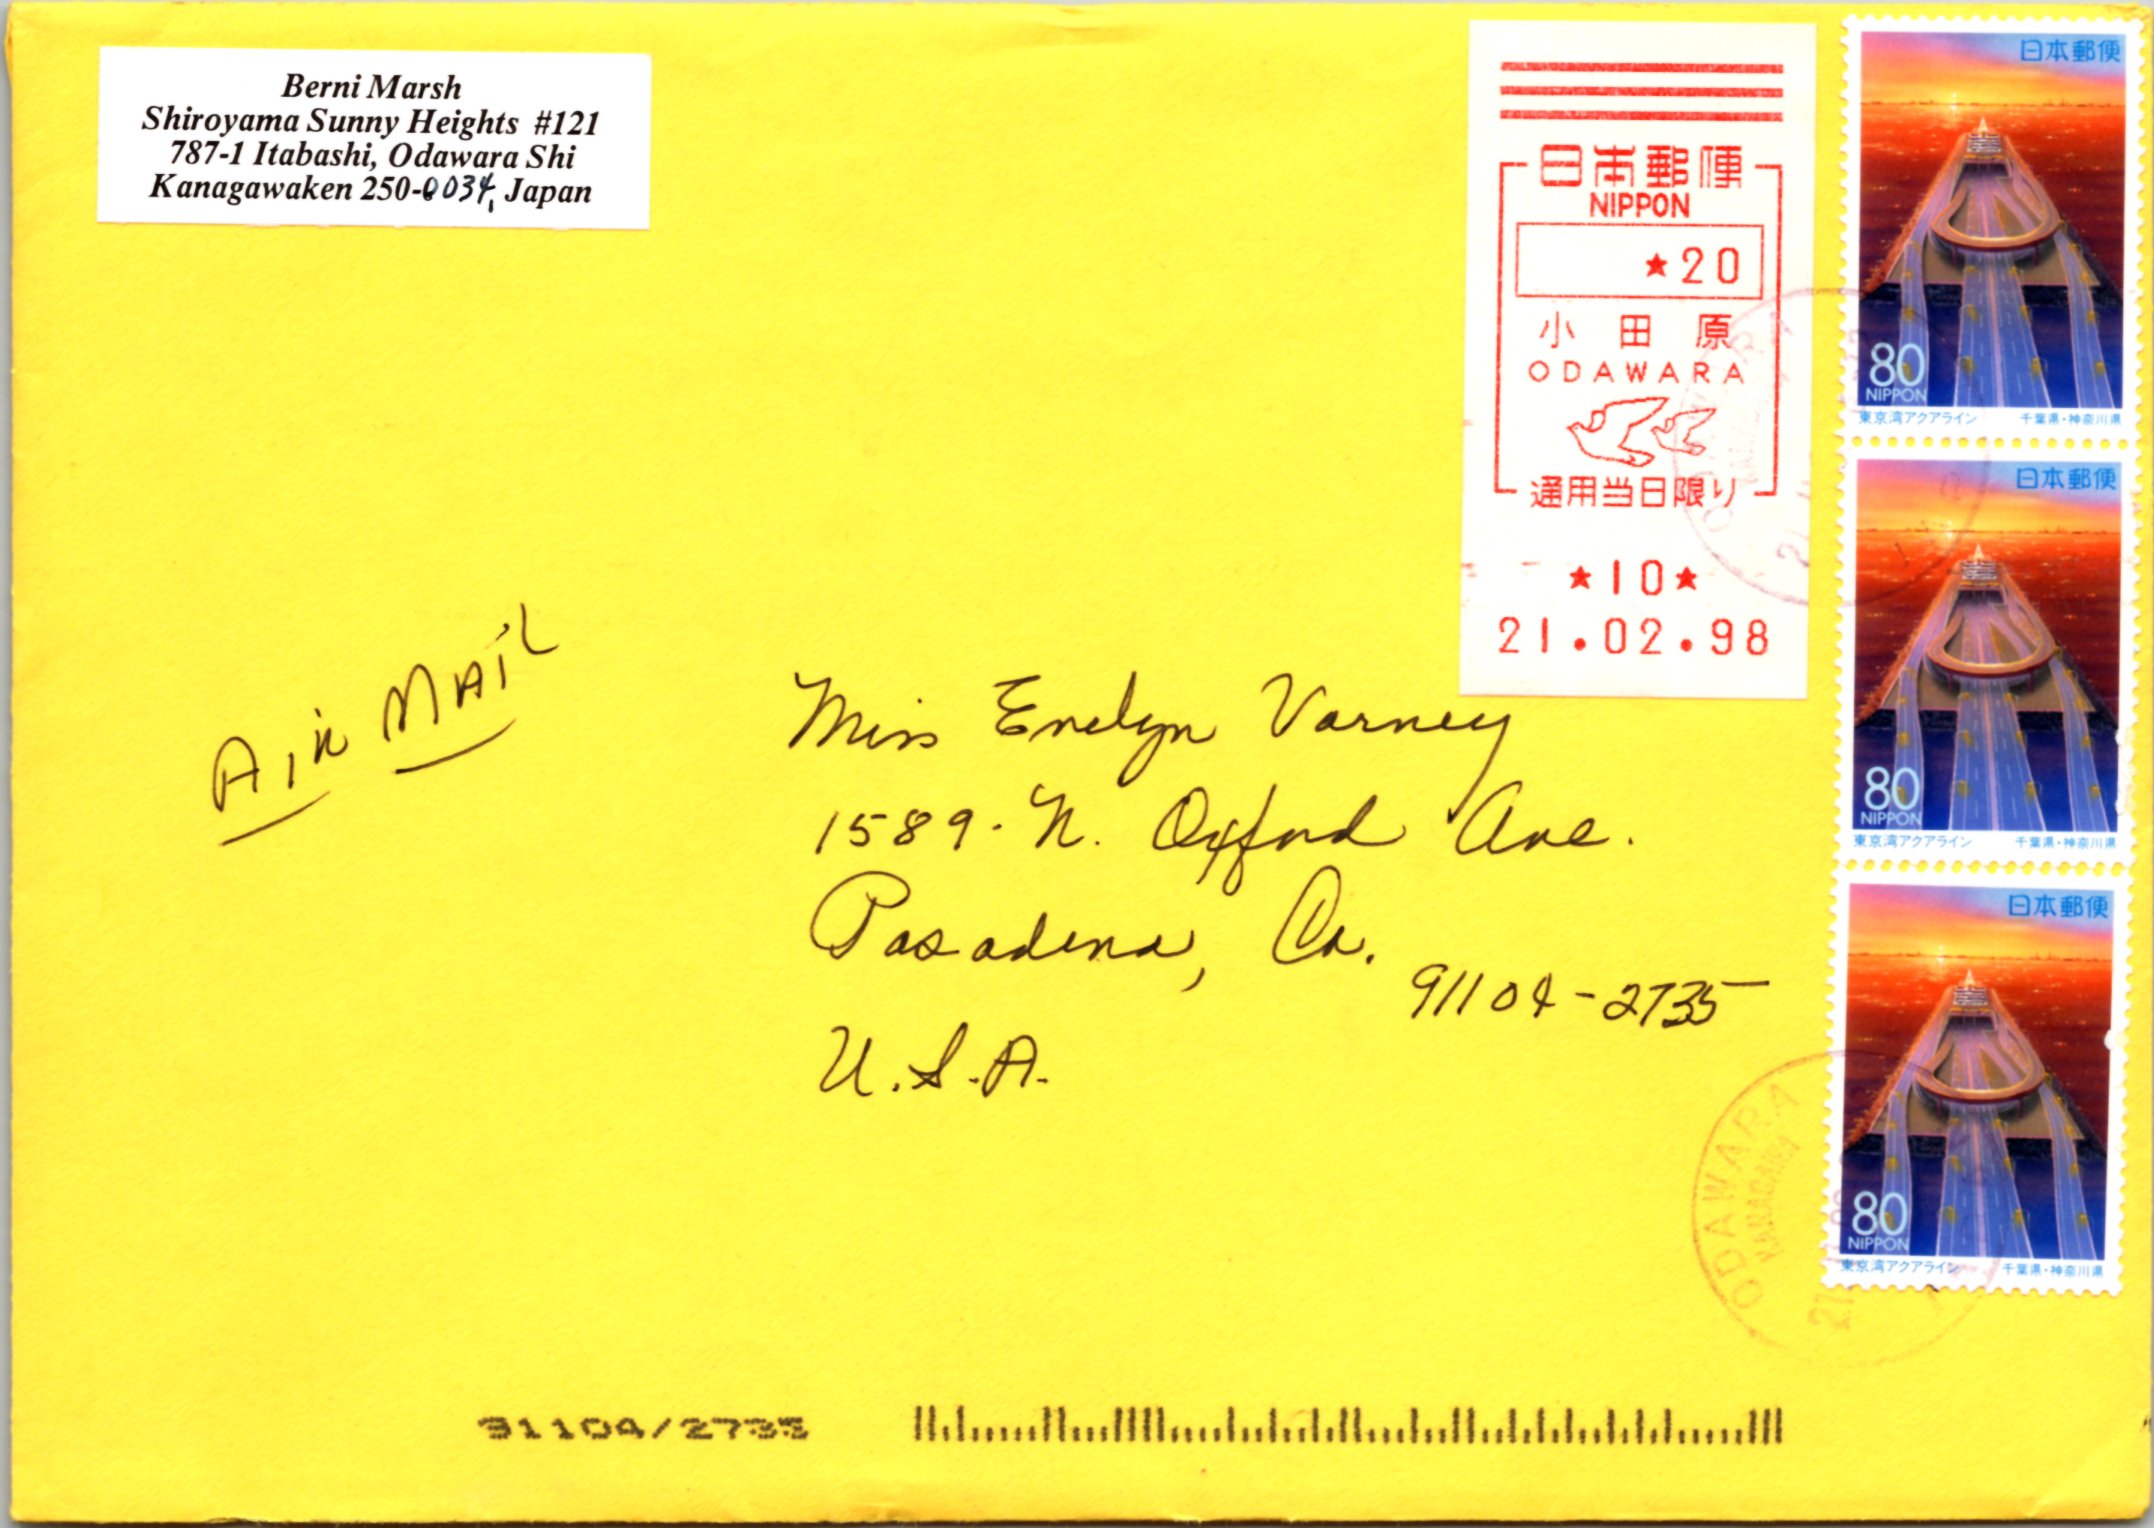 Berni Marsh
Shiroyama Sunny Heights #121
787-1 Itabashi, Odawara Shi
Kanagawaken 250-0034, Japan
日本郵便
NIPPON
★20
小田原
ODAWARA
通用当日限り
★10★
21.02.98
日本郵便
80
NIPPON
東京湾アクアライン 千葉県・神奈川県
日本郵便
80
NIPPON
東京湾アクアライン 千葉県・神奈川県
日本郵便
80
NIPPON
東京湾アクアライン 千葉県・神奈川県
Air Mail
Miss Evelyn Varney
1589 - N. Oxford Ave.
Pasadena, Ca.
91104-2735
U.S.A.
ODAWARA
KANAGAWA
91104/2735